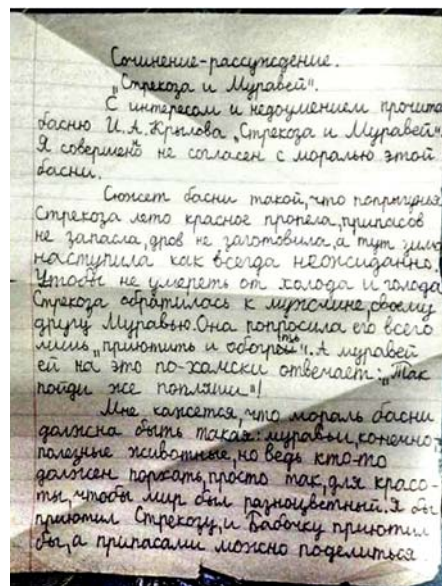 Сочинение-рассуждение.
„Стрекоза и Муравей".
С интересом и недоумением прочита
басню И.А.Крылова „Стрекоза и Муравей".
Я совершенн не согласен с моралью этой
басни.
Сюжет басни такой, что попрыгунья
Стрекоза лето красное пропела, припасов
не запасла, дров не заготовила, а тут зима
наступила как всегда неожиданно.
Чтобы не умереть от холода и голода
Стрекоза обратилась к мужчине, своему
другу Муравью. Она попросила его всего
лишь „приютить и обогреть". А муравей
ей на это по-хамски отвечает: „Так
пойди же попляши"!
Мне кажется, что мораль басни
должна быть такая: муравьи, конечно
полезные животные, но ведь кто-то
должен порхать, просто так, для красо-
ты, чтобы мир был разноцветный. Я бы
приютил Стрекозу, и Бабочку приютил
бы, а припасами можно поделиться.